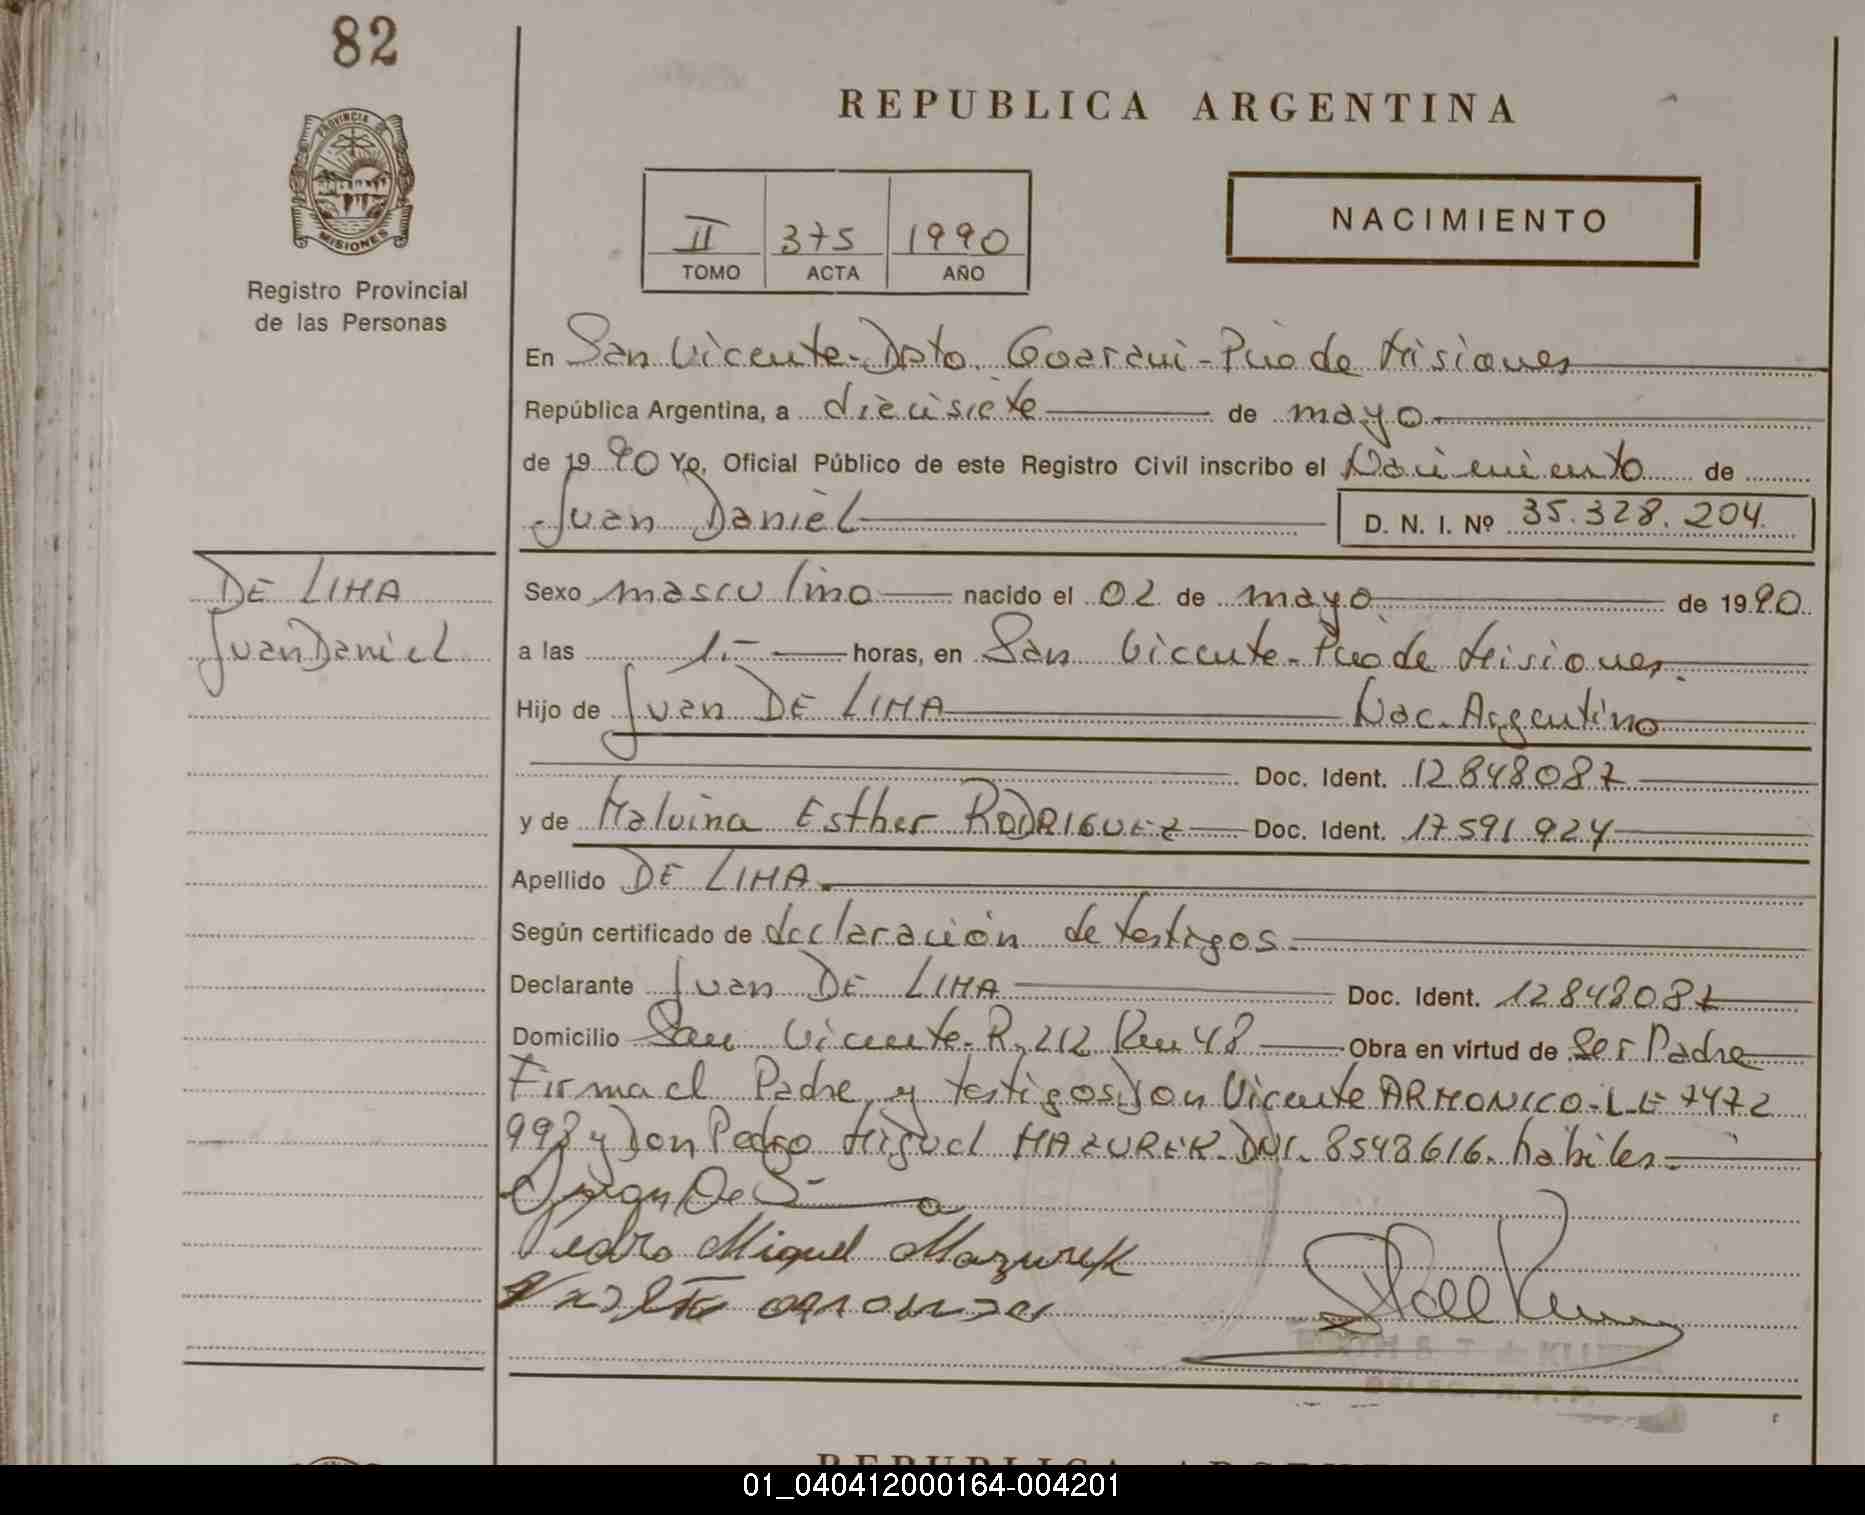 82
REPUBLICA ARGENTINA
PROVINCIA DE
MISIONES
Registro Provincial
de las Personas
II 375 1990
TOMO ACTA AÑO
NACIMIENTO
En San Vicente-Dpto. Guarani-Pcia de Misiones
República Argentina, a diecisiete de mayo
de 1990 Yo, Oficial Público de este Registro Civil inscribo el Nacimiento de
Juan Daniel D. N. I. Nº 35.328.204.
DE LIMA
Juan Daniel
Sexo masculino nacido el 02 de mayo de 1990
a las 1.- horas, en San Vicente-Pcia de Misiones.
Hijo de Juan DE LIMA Nac. Argentino
Doc. Ident. 12848087
y de Malvina Esther RODRIGUEZ Doc. Ident. 17591924
Apellido DE LIMA.
Según certificado de declaración de testigos.
Declarante Juan DE LIMA Doc. Ident. 12848087
Domicilio San Vicente-R. 212 Km 48 Obra en virtud de Ser Padre
Firma el Padre y testigos Don Vicente ARMONICO-L-E 7472
998 y Don Pedro Miguel MAZUREK-DNI. 8548616. habiles.
Pedro Miguel Mazurek
REPUBLICA ARGENTINA
01_040412000164-004201